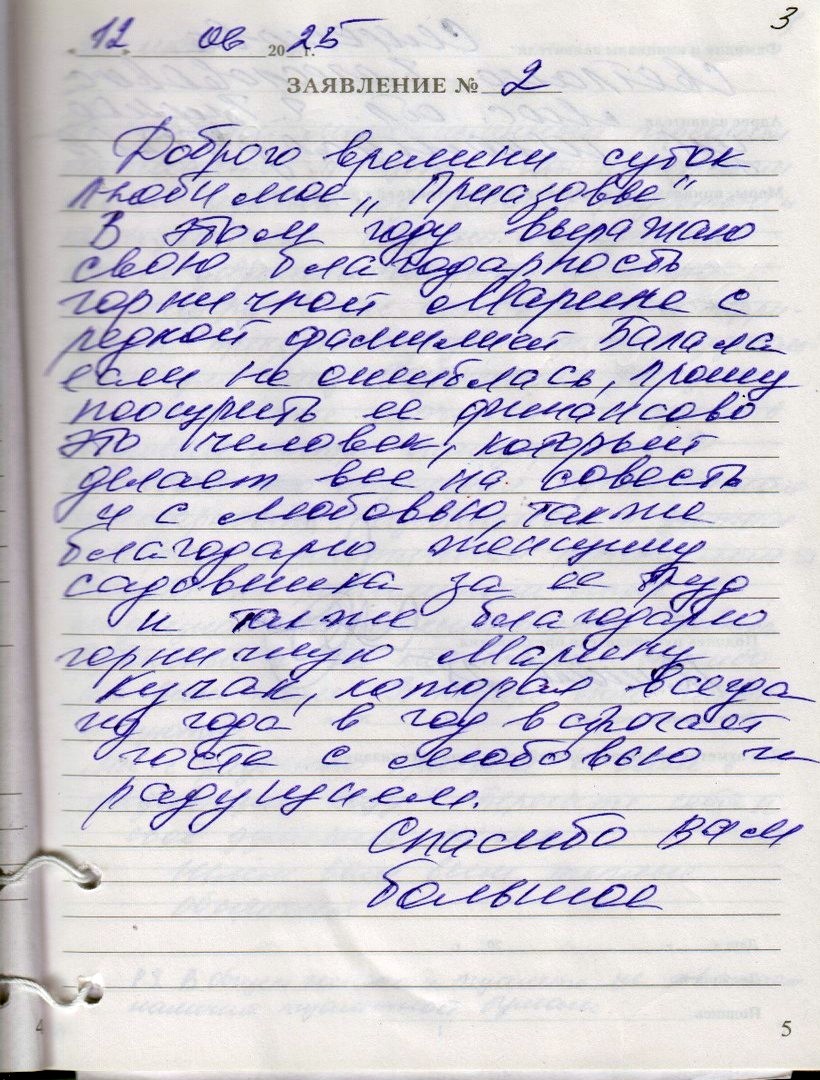 3
12 06 2025 г.
ЗАЯВЛЕНИЕ № 2
Доброго времени суток
любимое „Приазовье"
В этом году выражаю
свою благодарность
горничной Марине с
редкой фамилией Балала
если не ошиблась, прошу
поощрить ее финансово
это человек, который
делает все на совесть
и с любовью, также
благодарю женщину
садовника за ее труд
и также благодарю
горничную Марину
Кучак, которая всегда
из года в год встречает
гостя с любовью и
радушием.
Спасибо Вам
большое
4
5